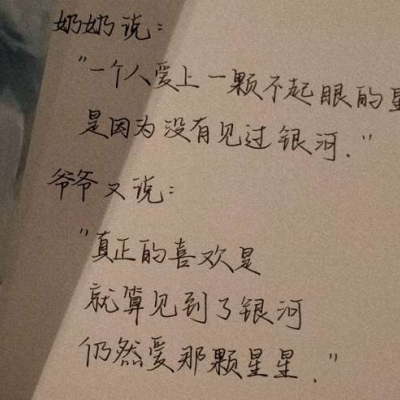 奶奶说：
"一个人爱上一颗不起眼的星
是因为没有见过银河."
爷爷又说：
"真正的喜欢是
就算见到了银河
仍然爱那颗星星."